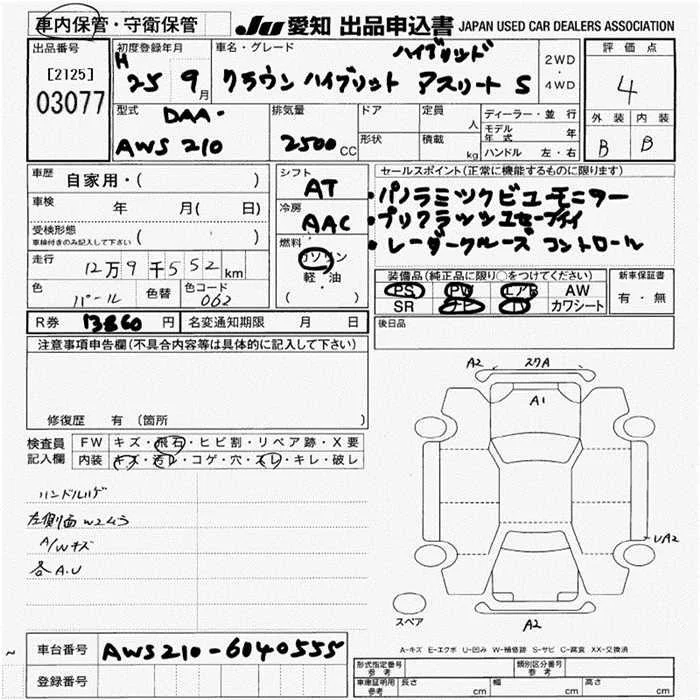 車内保管・守衛保管
JU 愛知 出品申込書 JAPAN USED CAR DEALERS ASSOCIATION
出品番号
[2125]
03077
初度登録年月
H 25 9月
車名・グレード
ハイブリッド
クラウン ハイブリット アスリート S
2WD
・
4WD
評価点
4
外装 内装
B B
型式
DAA-
AWS210
排気量
2500 CC
ドア
形状
定員
人
積載
kg
ディーラー・並行
モデル年式 年
ハンドル 左・右
車歴 自家用・( )
車検 年 月( 日)
受検形態
車検付きのみ記入して下さい ( )
走行 12万9千552km
色 パール 色替 色コード 062
シフト
AT
冷房
AAC
燃料
ガソリン
軽・油
( )
セールスポイント(正常に機能するものに限ります)
・パノラミックビューモニター
・プリクラッシュセーフティ
・レーダークルーズコントロール
装備品(純正品に限り○をつけてください)
PS PW エアB AW
SR ナビ TV カワシート
新車保証書
有・無
後日品
R券 13860円 名変通知期限 月 日
注意事項申告欄(不具合内容等は具体的に記入して下さい)
修復歴 有 (箇所 )
検査員記入欄
FW キズ・飛石・ヒビ割・リペア跡・X要
内装 キズ・汚レ・コゲ・穴・スレ・キレ・破レ
ハンドルハゲ
左側面W2ムラ
A/Wキズ
各A.U
A2 スワA
A1
UA2
A2
スペア
A-キズ E-エクボ U-凹み W-補修跡 S-サビ C-腐食 XX-交換済
~
車台番号 AWS210-6040555
登録番号
形式指定番号
参考
類別区分番号
参考
車庫証明用
参考
長さ cm 幅 cm 高さ cm